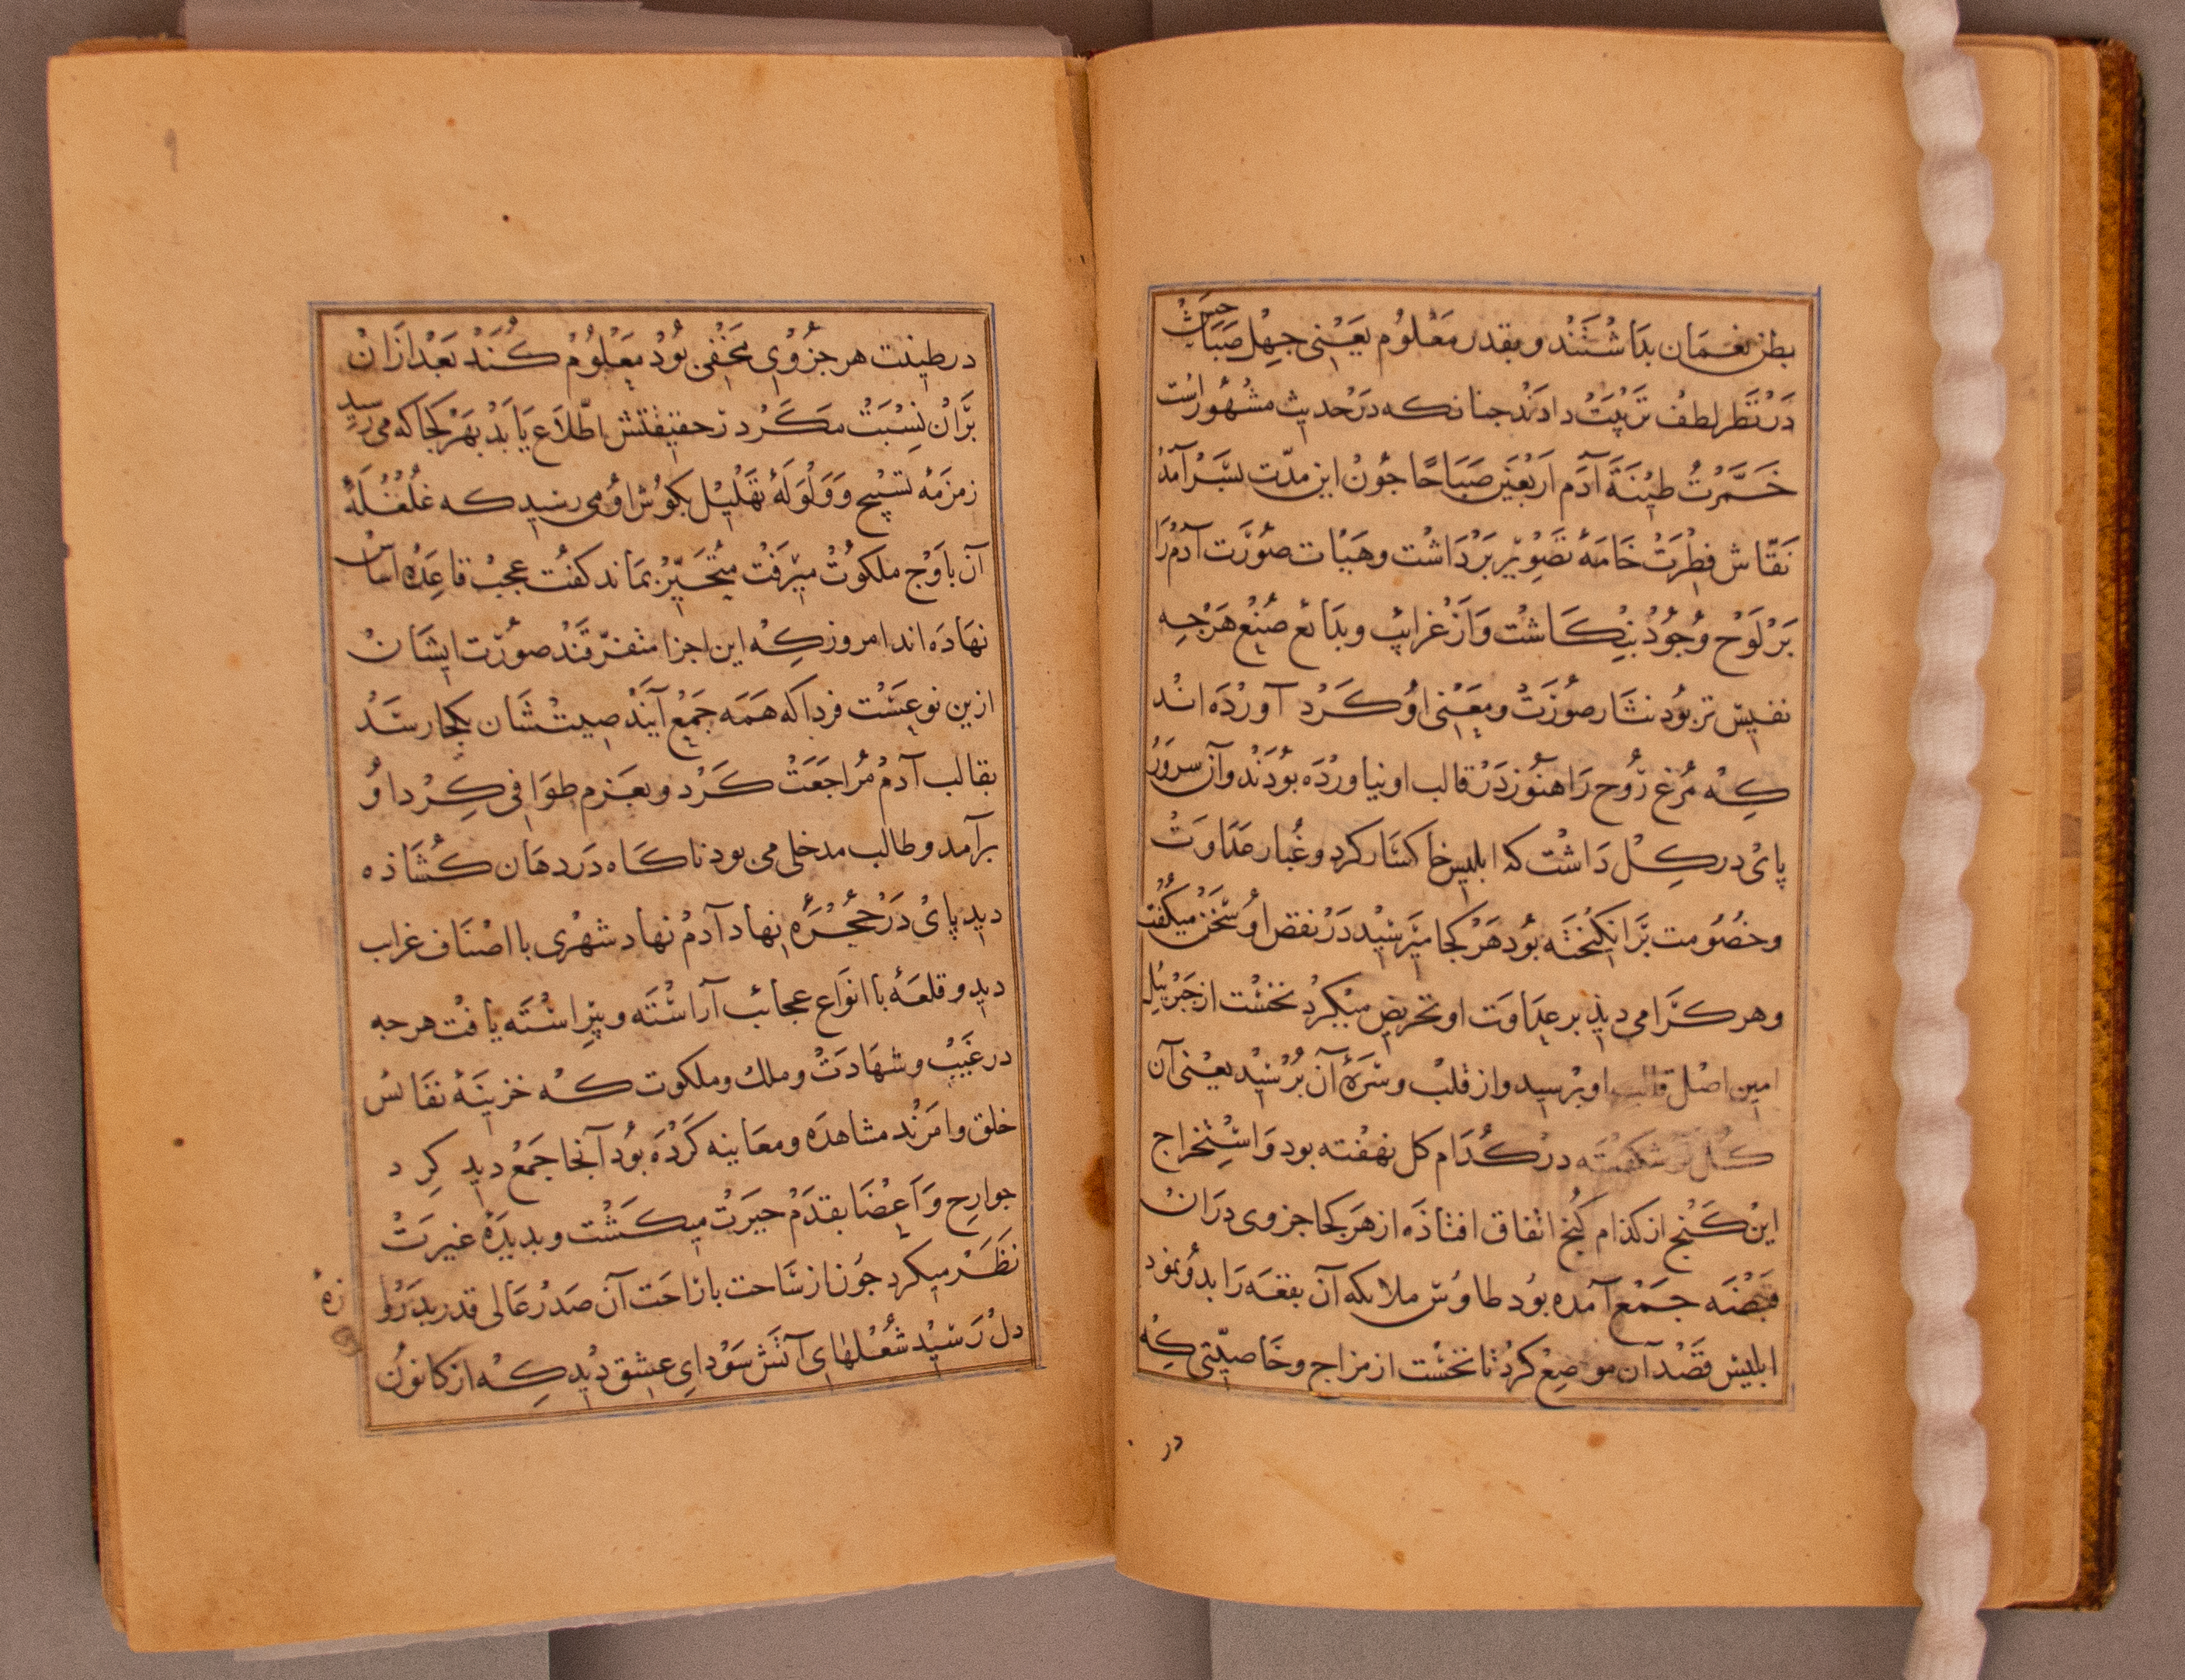 بطن نعمان بداشتند و بقدر معلوم یعنی جهل صباحش
در نظر لطف تربیت دادند جنانکه در حدیث مشهورست
خَمَّرْتُ طِیْنَةَ آدَمَ اَرْبَعِیْنَ صَبَاحًا جون این مدّت بسر آمد
نقّاش فطرت خامهٔ تصویر برداشت وهیات صورت آدم را
بر لوح وجود بنکاشت و از غرایب و بدائع صنع هرجه
نفیس تر بود نثار صورت و معنی او کرد آورده اند
که مرغ روح را هنوز در قالب او نیاورده بودند و آن سرور
پای در کل داشت که ابلیس خاکسار کرد و غبار عداوت
و خصومت برانکیخته بود هر کجا میرسید در نقض او سخن میکفت
و هر کرا می دید بر عداوت او تحریض میکرد نخست از جبرئیل
امین اصل قالب او برسید و از قلب و سرهٔ آن برسید یعنی آن
کل نو شکفته در کدام کل نهفته بود و استخراج
این کنج از کدام کنج اتفاق افتاده از هر کجا جزوی در ان
قبضه جمع آمده بود طاوس ملایکه آن بقعه را بدو نمود
ابلیس قصد آن موضع کرد تا نخست از مزاج و خاصیّتی که
در
در طینت هر جزوی مخفی بود معلوم کند بعد ازان
بران نسبت مکر در حقیقتش اطّلاع یابد بهر کجا که می رسید
زمزمهٔ تسبیح و ولولهٔ تهلیل بکوش او می رسید که غلغلهٔ
آن باوج ملکوت میرفت متحیّر بماند کفت عجب قاعدهٔ اساس
نهاده اند امروز که این اجزا متفرّقند صورت ایشان
ازین نوعست فردا که همه جمع آیند صیتشان بکجا رسد
بقالب آدم مراجعت کرد و بعزم طوافی کرد او
برآمد و طالب مدخلی می بود ناکاه در دهان کشاذه
دید پای در حجرهٔ نهاد آدم نهاد شهری با اصناف غراب
دید و قلعهٔ با انواع عجائب آراسته و پیراسته یافت هرجه
در غیب و شهادت و ملك و ملکوت که خزینهٔ نفائس
خلق و امرند مشاهده و معاینه کرده بود آنجا جمع دید کرد
جوارح و اعضا بقدم حیرت میکشت و بدیدهٔ غیرت
نظر میکرد جون از ساحت باراحت آن صدر عالی قدر بدروا
زهٔ
دل رسید شعلهای آتش سودای عشق دید که از کانون